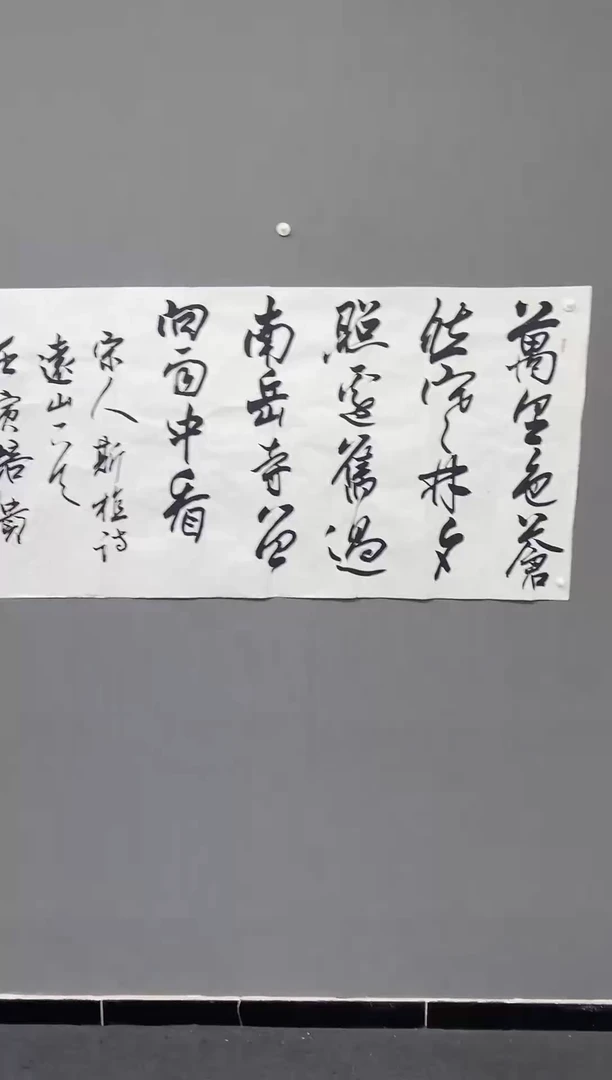 萬里色蒼
然寒林夕
照邊舊過
南岳寺曾
向雨中看
宋人斯植詩
遠山一首
壬寅